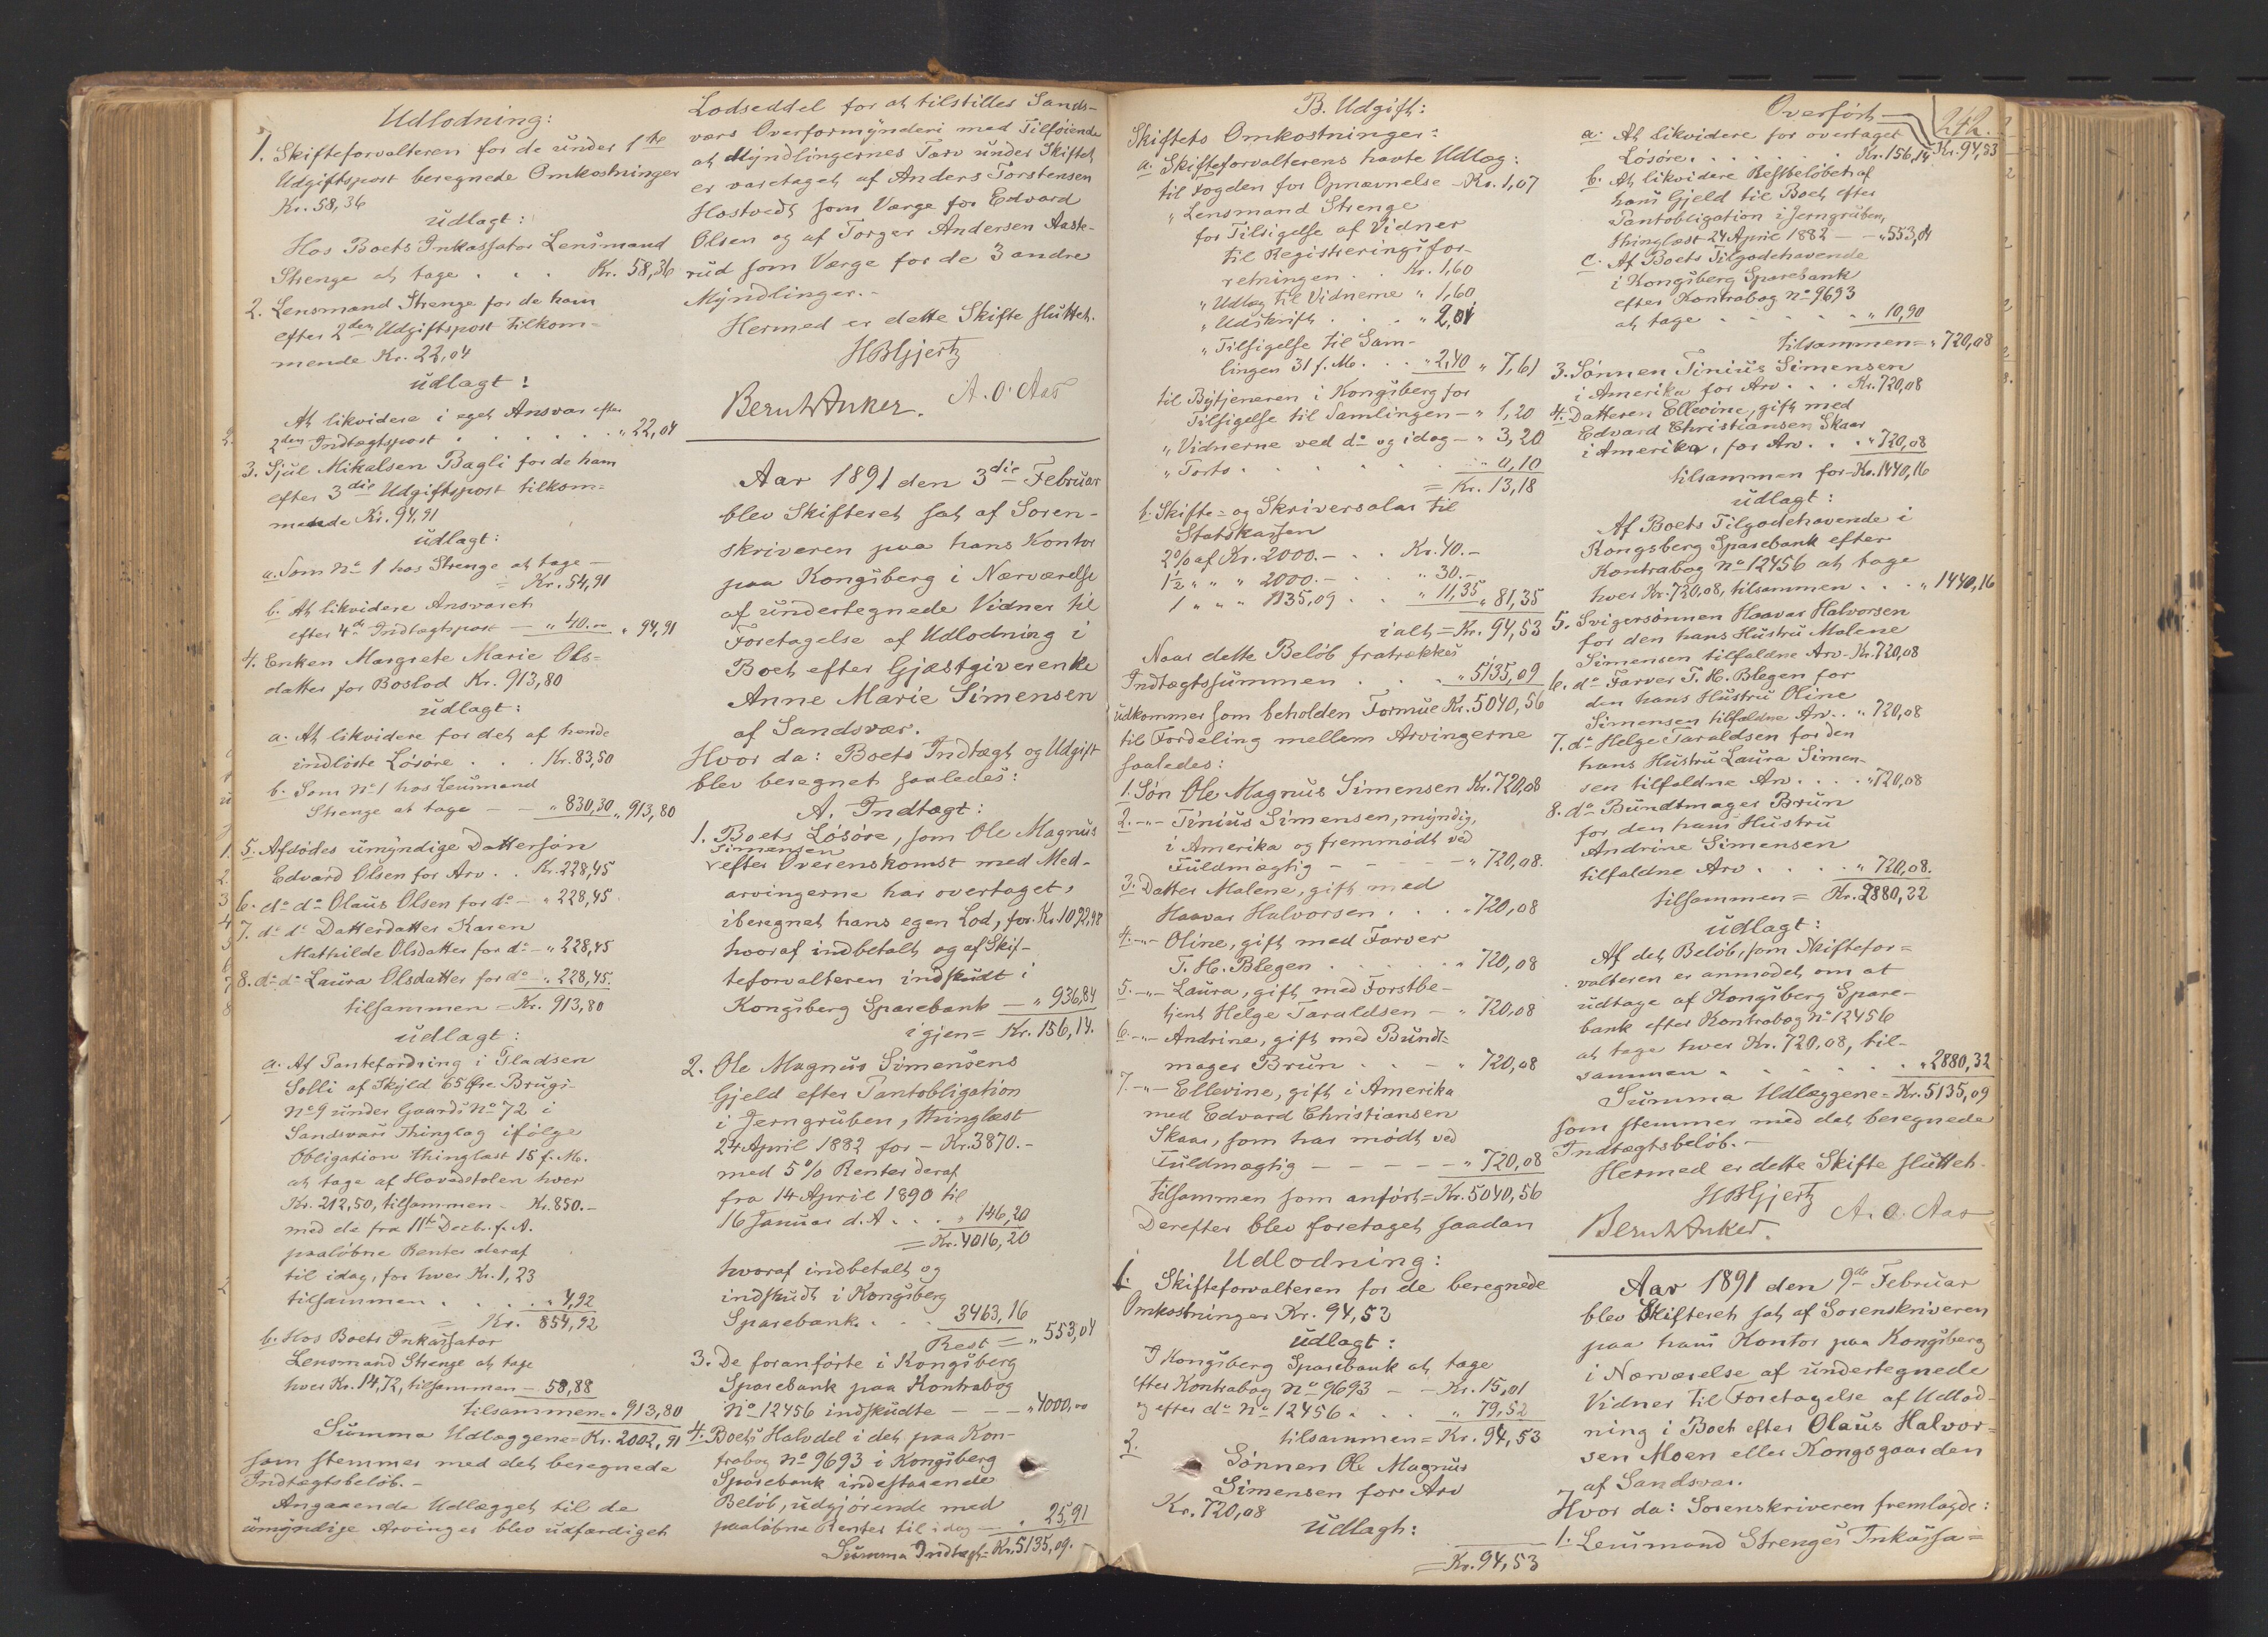 Udlodning:
1. Skifteforvalteren for de under 1ste
Udgiftspost beregnede Omkostninger
Kr. 58,36
udlagt:
Hos Boets Inkassator Lensmand
Strenge at tage . . . Kr. 58,36
2. Lensmand Strenge for de ham
efter 2den Udgiftspost tilkom=
mende Kr. 22,04
udlagt:
At likvidere i eget Ansvar efter
2den Indtægtspost . . . . . . " 22,04
3. Sjul Mikalsen Bagli for de ham
efter 3die Udgiftspost tilkom=
mende Kr. 94,91
udlagt:
a. Som No 1 hos Strenge at tage —
= Kr. 54,91
b. At likvidere Ansvaret
efter 4de Indtægtspost — " 40.00 " 94,91
4. Enken Margrete Marie Ols=
datter for Boslod Kr. 913,80
udlagt:
a. At likvidere for det af hende
indløste Løsøre . . . Kr. 83,50
b. Som No 1 hos Lensmand
Strenge at tage — — " 830,30 " 913,80
5. Afdødes umyndige Dattersøn
Edvard Olsen for Arv . . Kr. 228,45
6. do do Olaus Olsen for do — " 228,45
7. do do Datterdatter Karen
Mathilde Olsdatter for do — " 228,45
8. do do Laura Olsdatter for do — " 228,45.
tilsammen = Kr. 913,80
udlagt:
a. Af Pantefordring i Pladsen
Solli af Skyld 65 Øre Brugs-
No 9 under Gaards No 72 i
Sandsværs Thinglag ifølge
Obligation thinglæst 15 f. M.
at tage af Hovedstolen hver
Kr. 212,50, tilsammen - Kr. 850.-
med de fra 11te Decb. f. A.
paaløbne Renter deraf
til idag, for hver Kr. 1,23
tilsammen . . . . " 4,92
= Kr. 854,92
b. Hos Boets Inkassator
Lensmand Strenge at tage
hver Kr. 14,72, tilsammen — 58,88
tilsammen = " 913,80
Summa Udlæggene = Kr. 2002,91
som stemmer med det beregnede
Indtægtsbeløb. -
Angaaende Udlægget til de
umyndige Arvinger blev udfærdiget
Lodseddel for at tilstilles Sands-
værs Overformynderi med Tilføiende
at Myndlingernes Tarv under Skiftet
er varetaget af Anders Torstensen
Hostvedt som Værge for Edvard
Olsen og af Torger Andersen Aaste-
rud som Værge for de 3 andre
Myndlinger. -
Hermed er dette Skifte sluttet.
HBGjertz
Bernh Anker. A. O. Aas
Aar 1891 den 3die Februar
blev Skifteret sat af Soren-
skriveren paa hans Kontor
paa Kongsberg i Nærværelse
af undertegnede Vidner til
Foretagelse af Udlodning i
Boet efter Gjæstgiverenke
Anne Marie Simensen
af Sandsvær.
Hvor da: Boets Indtægt og Udgift
blev beregnet saaledes:
A. Indtægt:
1. Boets Løsøre, som Ole Magnus
Simensen
efter Overenskomst med Med-
arvingerne har overtaget,
iberegnet hans egen Lod, for Kr. 1092,98
hvoraf indbetalt og af Skif-
teforvalteren indskudt i
Kongsberg Sparebank — " 936,84
igjen = Kr. 156,14.
2. Ole Magnus Simensens
Gjeld efter Pantobligation
i Jerngruben, thinglæst
24 April 1882 for — Kr. 3870.-
med 5% Renter deraf
fra 14 April 1890 til
16 Januar d. A . . . " 146,20
= Kr. 4016,20
hvoraf indbetalt og
indskudt i Kongsberg
Sparebank . . . 3463,16
Rest = " 553,04
3. De foranførte i Kongsberg
Sparebank paa Kontrabog
No 12456 indskudte — — — " 4000,00
4. Boets Halvdel i det paa Kon-
trabog No 9693 i Kongsberg
Sparebank indestaaende
Beløb, udgjørende med
paaløbne Renter til idag — " 25,91
Summa Indtægt = Kr. 5135,09.
B. Udgift:
Skiftets Omkostninger:
a. Skifteforvalterens havte Udlæg:
til Fogden for Opnævnelse — Kr. 1,07
" Lensmand Strenge
for Tilsigelse af Vidner
til Registreringsfor-
retningen . . Kr. 1,60
" Udlæg til Vidnerne " 1,60
" Udskrift . . . " 2,01
" Tilsigelse til Sam-
lingen 31 f. M. . . " 2,40 " 7,61
til Bytjeneren i Kongsberg for
Tilsigelse til Samlingen — " 1,20
" Vidnerne ved do og idag — " 3,20
" Porto . . . . . . . " 0,10
= Kr. 13,18
b. Skifte- og Skriversalar til
Statskassen
2% af Kr. 2000.- . . Kr. 40.-
1½ " " " 2000.- . . " 30.-
1 " " " 1135,09 . . " 11,35 " 81,35
ialt = Kr. 94,53
Naar dette Beløb fratrækkes
Indtægtssummen . . . " 5135,09
udkommer som beholden Formue Kr. 5040,56
til Fordeling mellem Arvingerne
saaledes:
1. Søn Ole Magnus Simensen Kr. 720,08
2. -"- Tinius Simensen, myndig,
i Amerika og fremmødt ved
Fuldmægtig — — — — " 720,08.
3. Datter Malene, gift med
Haavar Halvorsen . . . " 720,08
4. -"- Oline, gift med Farver
T. H. Blegen . . . . . " 720,08
5. -"- Laura, gift med Forstbe-
tjent Helge Taraldsen — " 720,08
6. -"- Andrine, gift med Bundt-
mager Brun . . . — " 720,08
7. -"- Ellevine, gift i Amerika
med Edvard Christiansen
Skaar, som har mødt ved
Fuldmægtig — — — — — " 720,08
tilsammen som anført = Kr. 5040,56
Derefter blev foretaget saadan
Udlodning:
1. Skifteforvalteren for de beregnede
Omkostninger Kr. 94,53
udlagt:
I Kongsberg Sparebank at tage
efter Kontrabog No 9693 — — Kr. 15,01
og efter do No 12456 . . . " 79,52
tilsammen = Kr. 94,53
2. Sønnen Ole Magnus
Simensen for Arv
Kr. 720,08
udlagt:
= Kr. 94,53
242.
Overført — Kr. 94,53
a. At likvidere for overtaget
Løsøre . . . . . . . Kr. 156,14
b. At likvidere Restbeløbet af
hans Gjeld til Boet efter
Pantobligation i Jerngruben,
thinglæst 24 April 1882 — — " 553,04
c. Af Boets Tilgodehavende
i Kongsberg Sparebank
efter Kontrabog No 9693
at tage . . . . . " 10,90
tilsammen = " 720,08
3. Sønnen Tinius Simensen
i Amerika for Arv . . . Kr. 720,08
4. Datteren Ellevine, gift med
Edvard Christiansen Skaar
i Amerika, for Arv . . . " 720,08
tilsammen for Kr. 1440,16
udlagt:
Af Boets Tilgodehavende i
Kongsberg Sparebank efter
Kontrabog No 12456 at tage
hver Kr. 720,08, tilsammen . . . " 1440,16
5. Svigersønnen Haavar Halvorsen
for den hans Hustru Malene
Simensen tilfaldne Arv - Kr. 720,08
6. do Farver T. H. Blegen for
den hans Hustru Oline
Simensen tilfaldne Arv . . " 720,08
7. do Helge Taraldsen for den
hans Hustru Laura Simen-
sen tilfaldne Arv . . . . " 720,08
8. do Bundtmager Brun
for den hans Hustru
Andrine Simensen
tilfaldne Arv . . . . " 720,08.
tilsammen = Kr. 2880,32
udlagt:
Af det Beløb, som Skiftefor=
valteren er anmodet om at
udtage af Kongsberg Spare-
bank efter Kontrabog No 12456
at tage hver Kr. 720,08, til-
sammen . . . . . . . " 2880,32
Summa Udlæggene = Kr. 5135,09
som stemmer med det beregnede
Indtægtsbeløb. -
Hermed er dette Skifte sluttet.
HBGjertz
Bernh Anker. A. O. Aas
Aar 1891 den 9de Februar
blev Skifteret sat af Sorenskriveren
paa hans Kontor paa Kongsberg
i Nærværelse af undertegnede
Vidner til Foretagelse af Udlod-
ning i Boet efter Olaus Halvor-
sen Moen eller Kongsgaarden
af Sandsvær.
Hvor da: Sorenskriveren fremlagde:
1. Lensmand Strenges Inkassa=